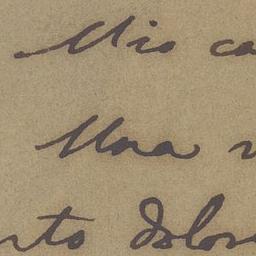 Mio ca
Una v
rto dolor